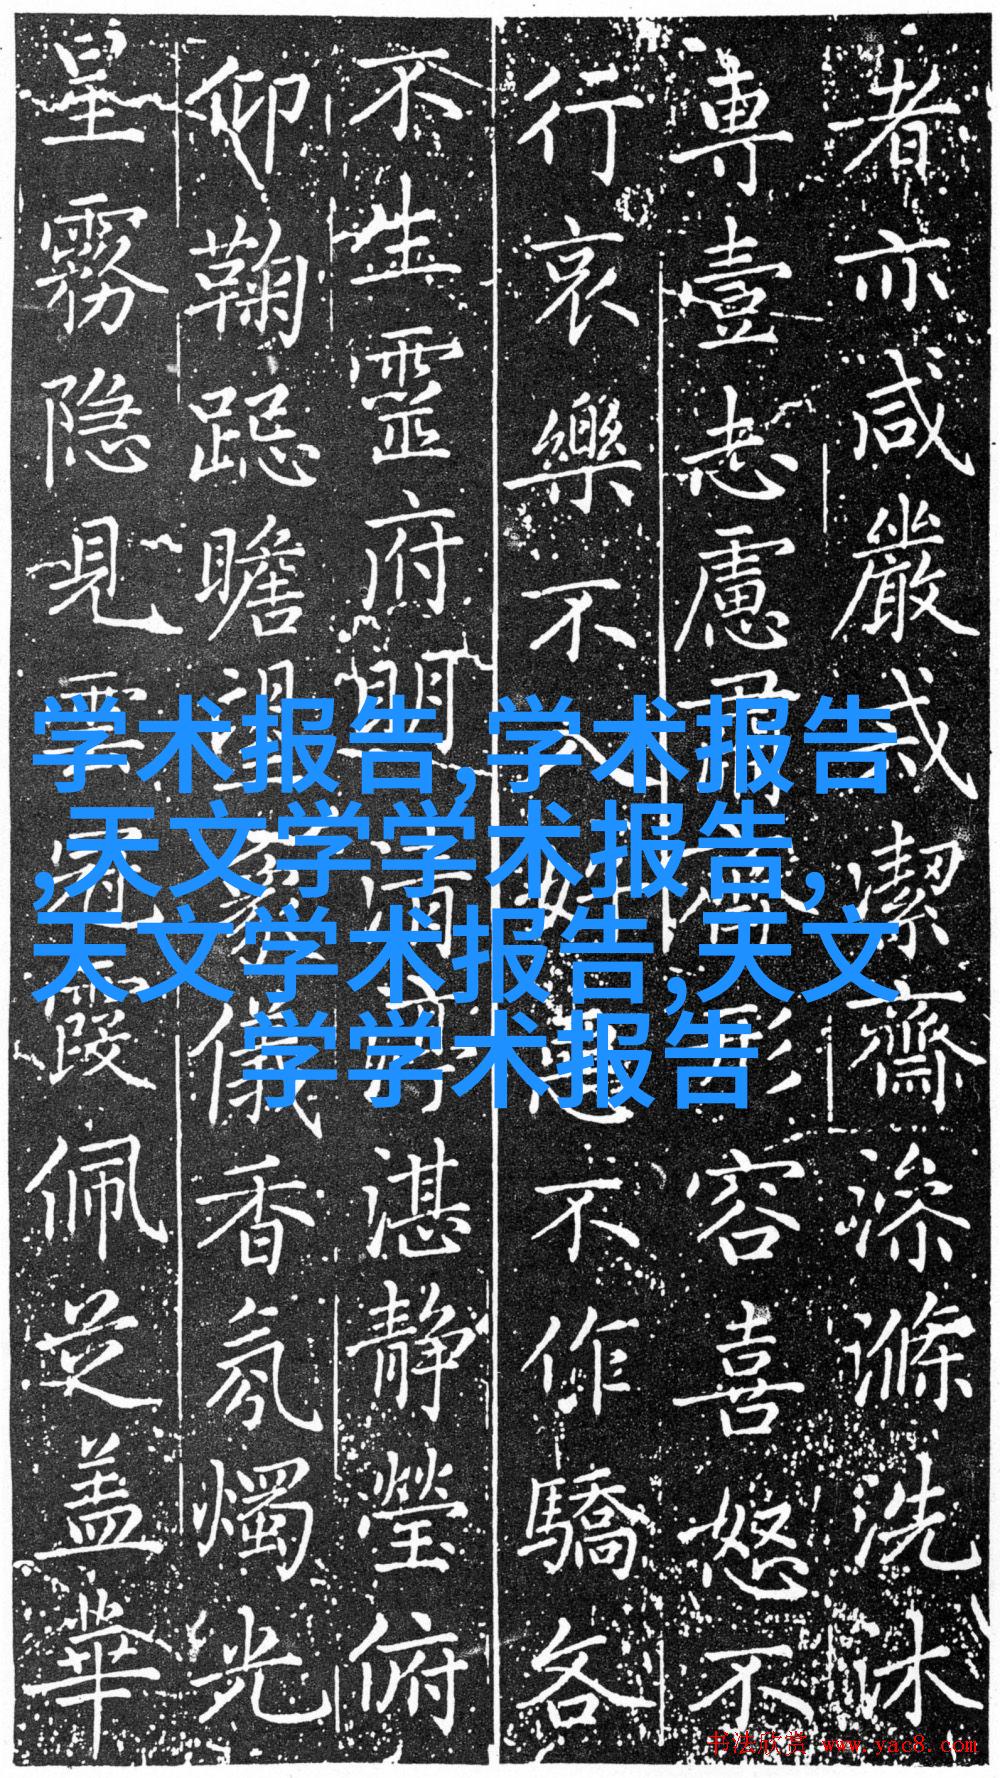 者亦咸嚴戒潔齋澡滌洗沐
專壹志慮容喜怒不
行哀樂不不作驕各
不生靈府清湛靜瑩俯
仰鞠跽瞻儀香氛燭光
星霧隐見雲霞佩芝盖華
学术报告,学术报告
,天文学学术报告,
天文学术报告,天文
学学术报告
书法欣赏 www.yac8.com